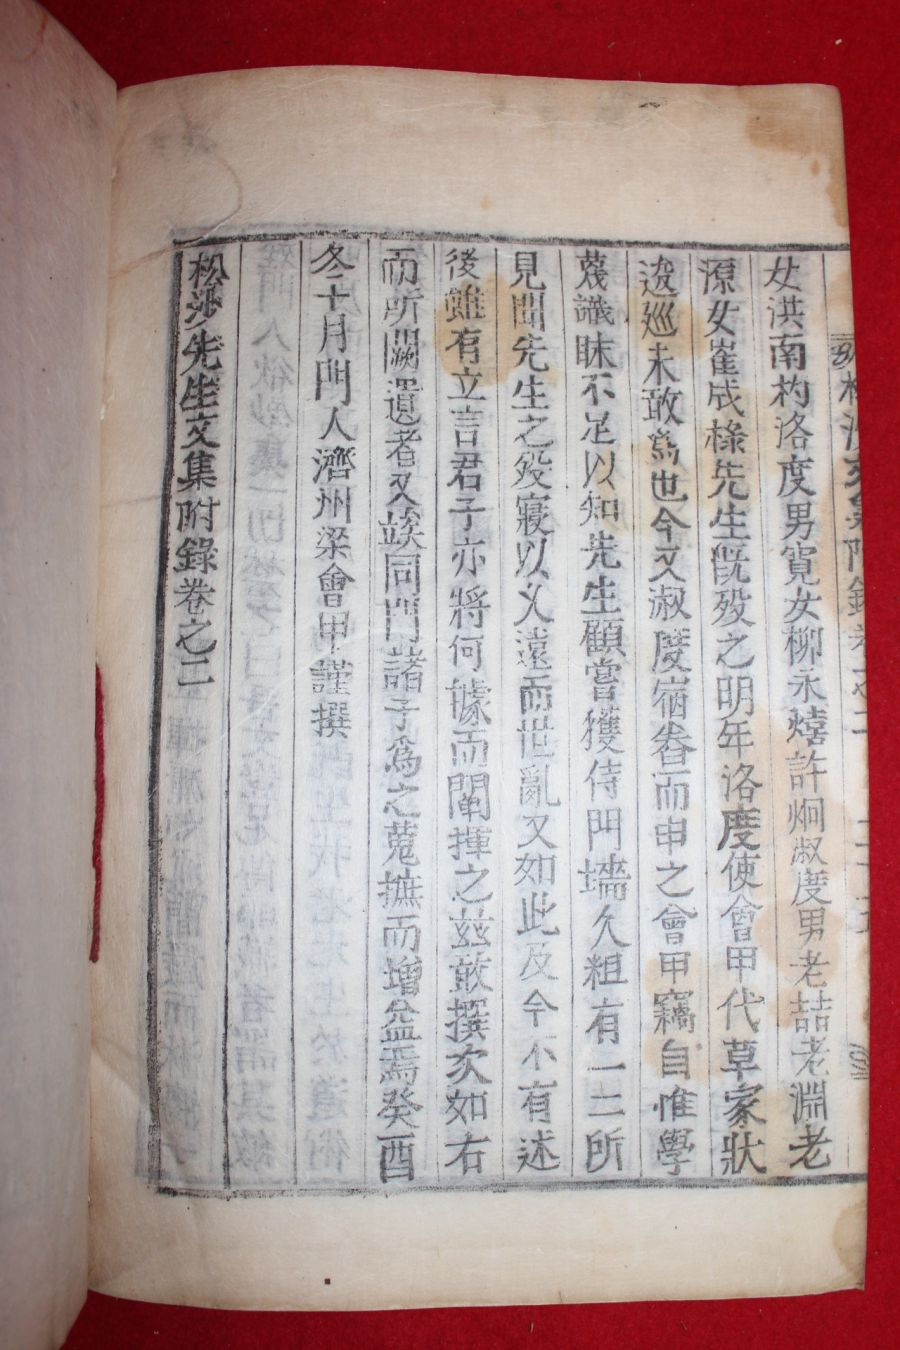 女洪南杓洛度男寬女柳永熺許炯淑度男老喆老淵老
源女崔成祿先生旣歿之明年洛度使會甲代草家狀
逡巡未敢爲也今又淑度宿舂而申之會甲竊自惟學
蔑識昧不足以知先生顧嘗獲侍門墻久粗有一二所
見聞先生之歿寢以又遠而世亂又如此及今不有述
後雖有立言君子亦將何據而闡揮之玆敢撰次如右
而所闕遺者又竢同門諸子爲之蒐摭而增益焉癸酉
冬十月門人濟州梁會甲謹撰
松沙先生文集附錄卷之二